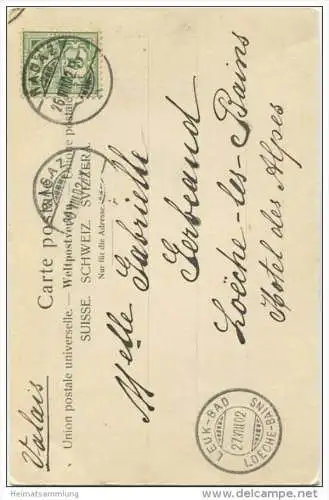 Carte postale
Union postale universelle. — Weltpostverein. — Unione postale
SUISSE. SCHWEIZ. SVIZZERA.
Nur für die Adresse.
RAGAZ
26.VIII.02
RAGAZ
Melle Gabrielle
Gerbeaud
Loèche-les-Bains
Hotel des Alpes
Valais
LEUK-BAD
27.VIII.02
LOECHE-BAINS
Heimatsammlung